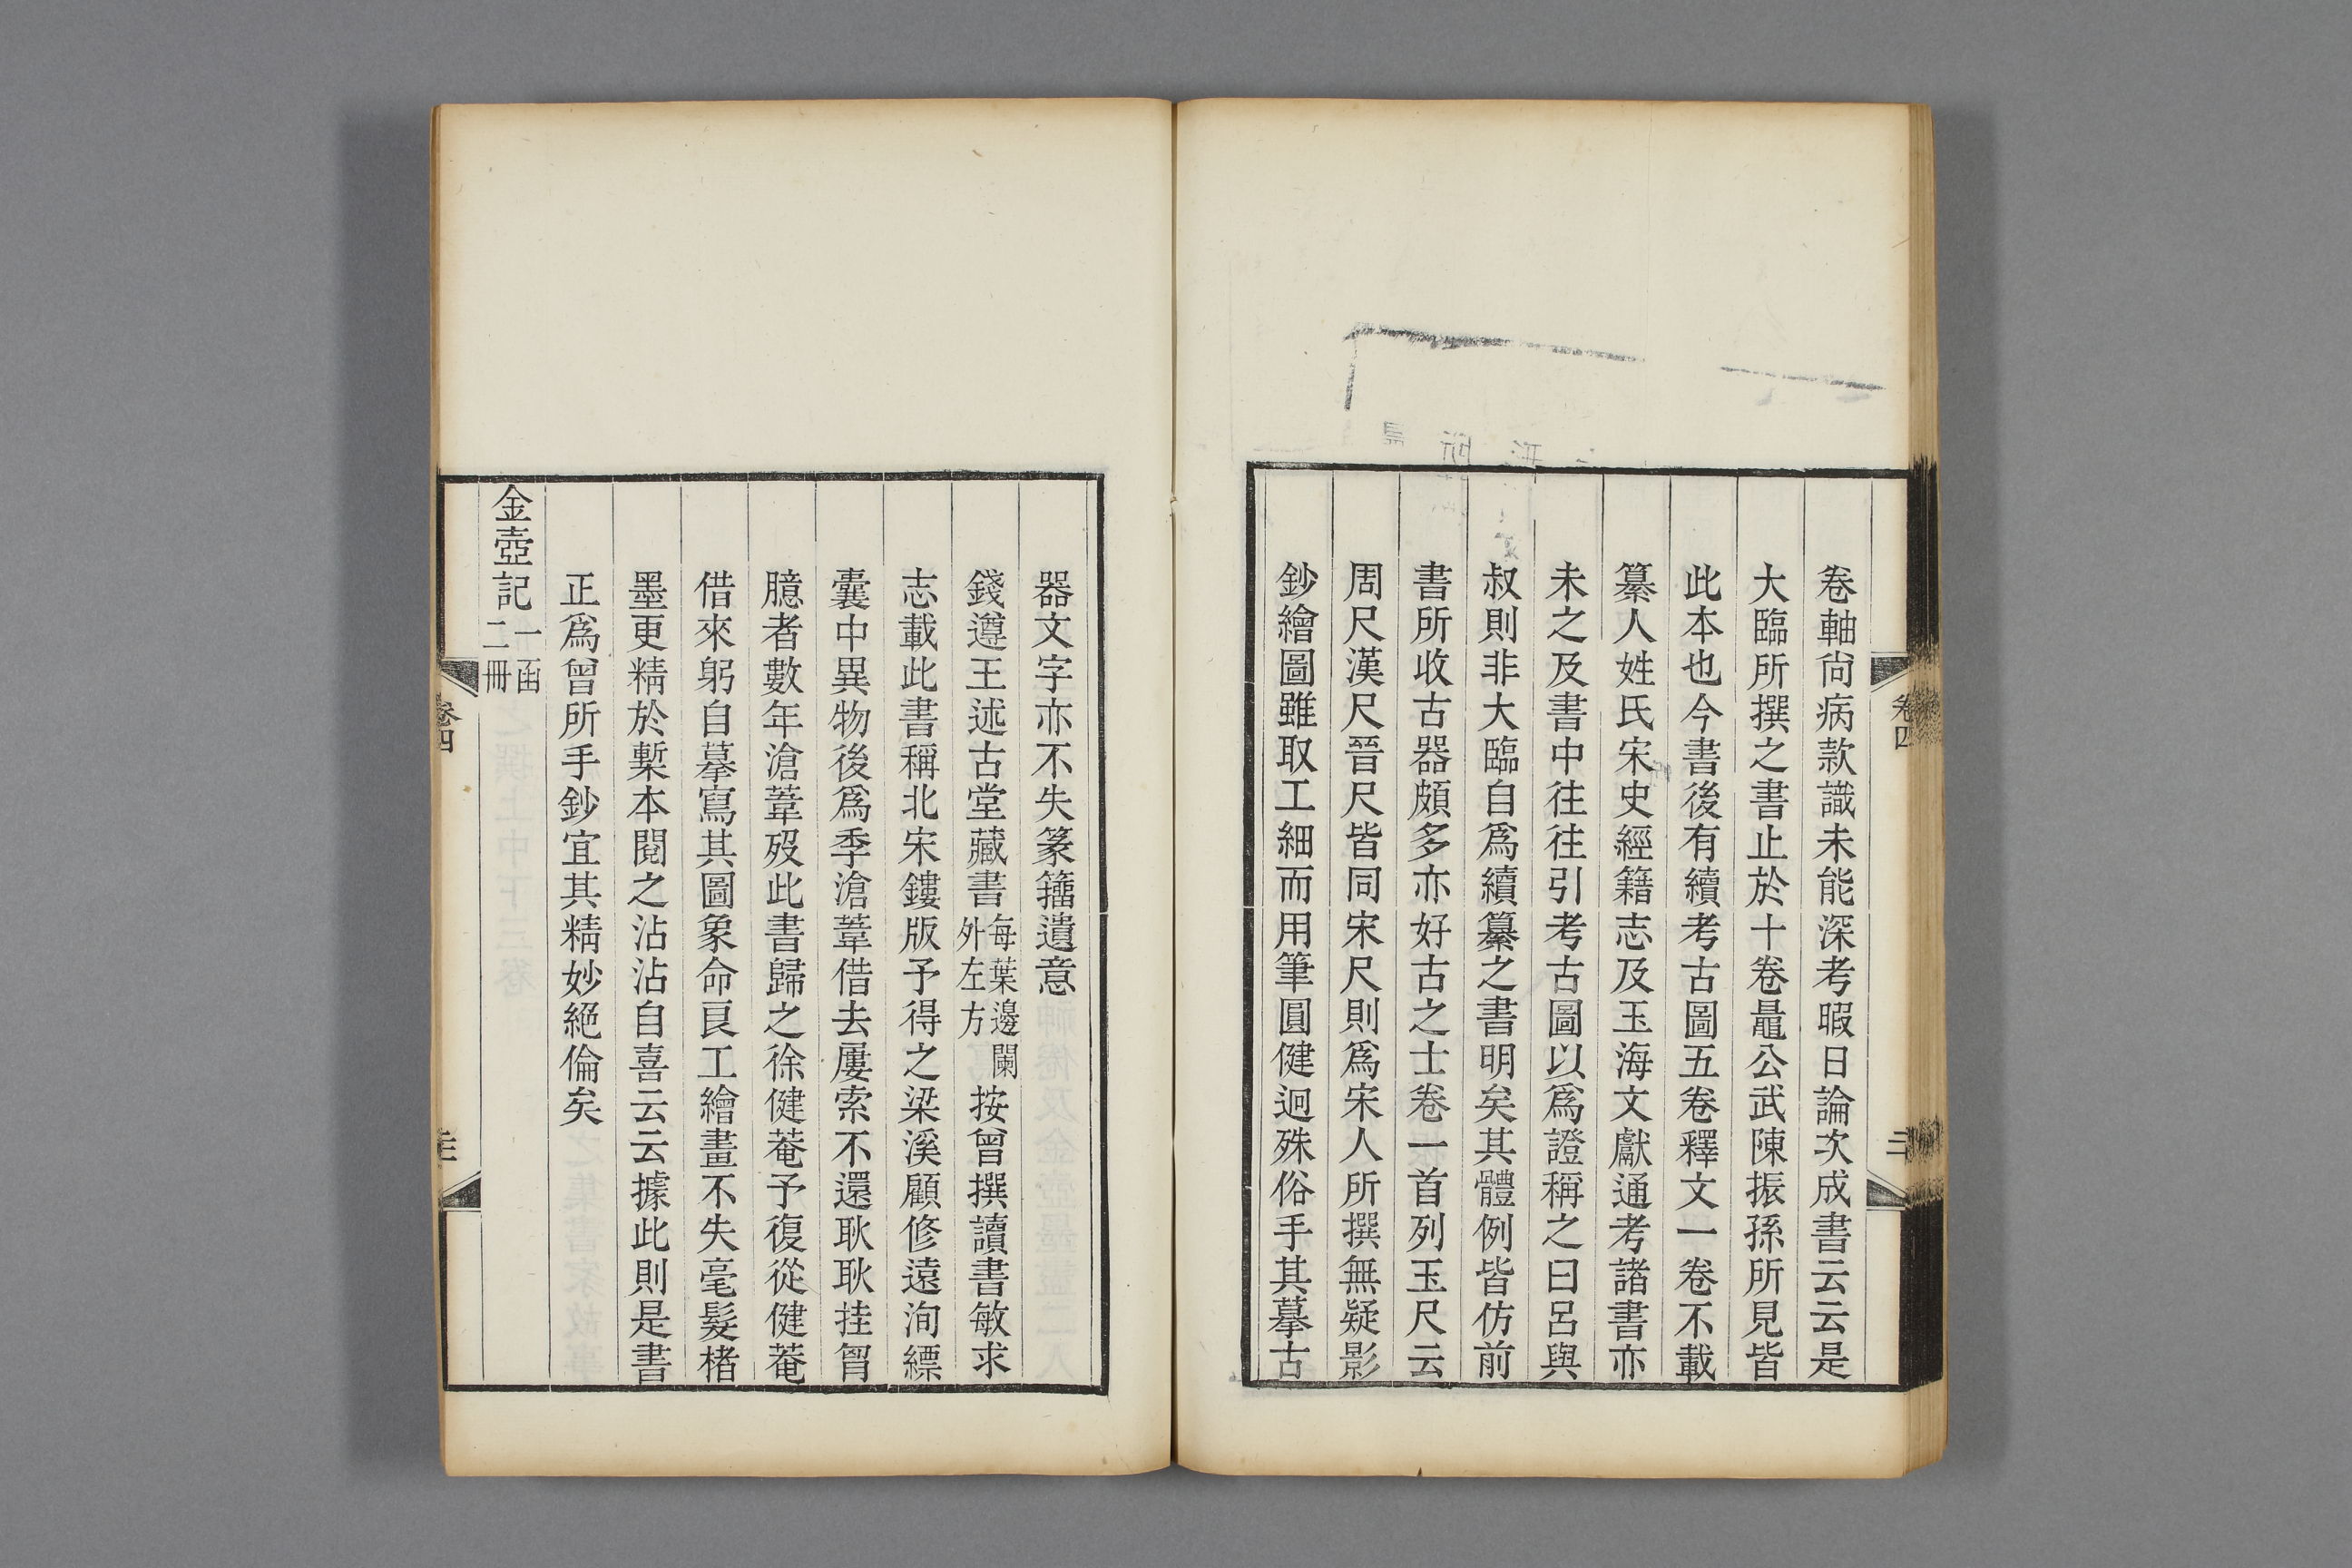 卷軸尙病款識未能深考暇日論次成書云云是
大臨所撰之書止於十卷鼂公武陳振孫所見皆
此本也今書後有續考古圖五卷釋文一卷不載
纂人姓氏宋史經籍志及玉海文獻通考諸書亦
未之及書中往往引考古圖以爲證稱之曰呂與
叔則非大臨自爲續纂之書明矣其體例皆仿前
書所收古器頗多亦好古之士卷一首列玉尺云
周尺漢尺晉尺皆同宋尺則爲宋人所撰無疑影
鈔繪圖雖取工細而用筆圓健迥殊俗手其摹古
器文字亦不失篆籀遺意
錢遵王述古堂藏書每葉邊闌外左方按曾撰讀書敏求
志載此書稱北宋鏤版予得之梁溪顧修遠洵縹
囊中異物後爲季滄葦借去屢索不還耿耿挂胷
臆者數年滄葦歿此書歸之徐健菴予復從健菴
借來躬自摹寫其圖象命良工繪畫不失毫髮楮
墨更精於槧本閱之沾沾自喜云云據此則是書
正爲曾所手鈔宜其精妙絕倫矣
金壺記一函二冊
卷四
卷四